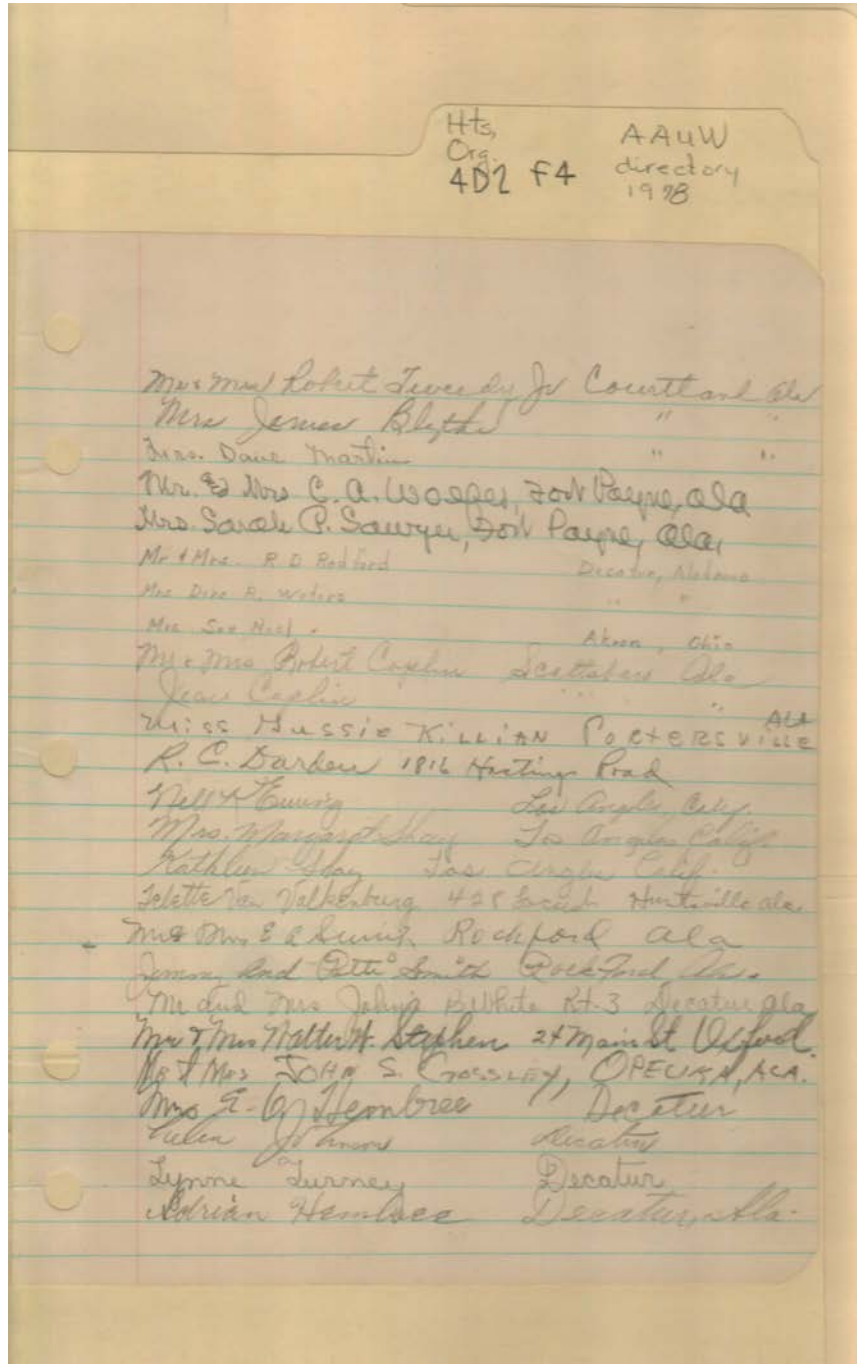 Hts,
Org.
4D2 F4
AAUW
directory
1978
Mr & Mrs Robert Tweedy Jr Courtland Ala
Mrs James Blythe " "
Mrs. Dave Martin " "
Mr. & Mrs C. A. Wolfes, Fort Payne, Ala
Mrs Sarah P. Sawyer, Fort Payne, Ala,
Mr & Mrs. R D Redford Decatur, Alabama
Mrs A. Waters " "
Mrs Sue Akron, Ohio
Mr & Mrs Robert Caplin Scottsboro Ala
Jean Caplin " "
Miss Gussie KILLIAN PORTERSVILLE ALA
R. C. Darden 1816 Hastings Road
Nell Ewing Los Angles, Calif.
Mrs. Margaret Shay Los Angles Calif.
Kathleen Shay Los Angles Calif.
Van Valkenburg 428 Locust Huntsville Ala.
Mr & Mrs E A Rockford Ala
Jimmy and Smith RockFord Ala.
Mr and Mrs John B White Rt-3 Decatur Ala
Mr & Mrs Walter W. Stephen 24 Main St Oxford.
Mr & Mrs JOHN S. CROSSLEY, OPELIKA, ALA.
Mrs E. O. Hembree Decatur
Helen Johnson Decatur
Lynne Turney Decatur
Adrian Hembree Decatur, Ala.